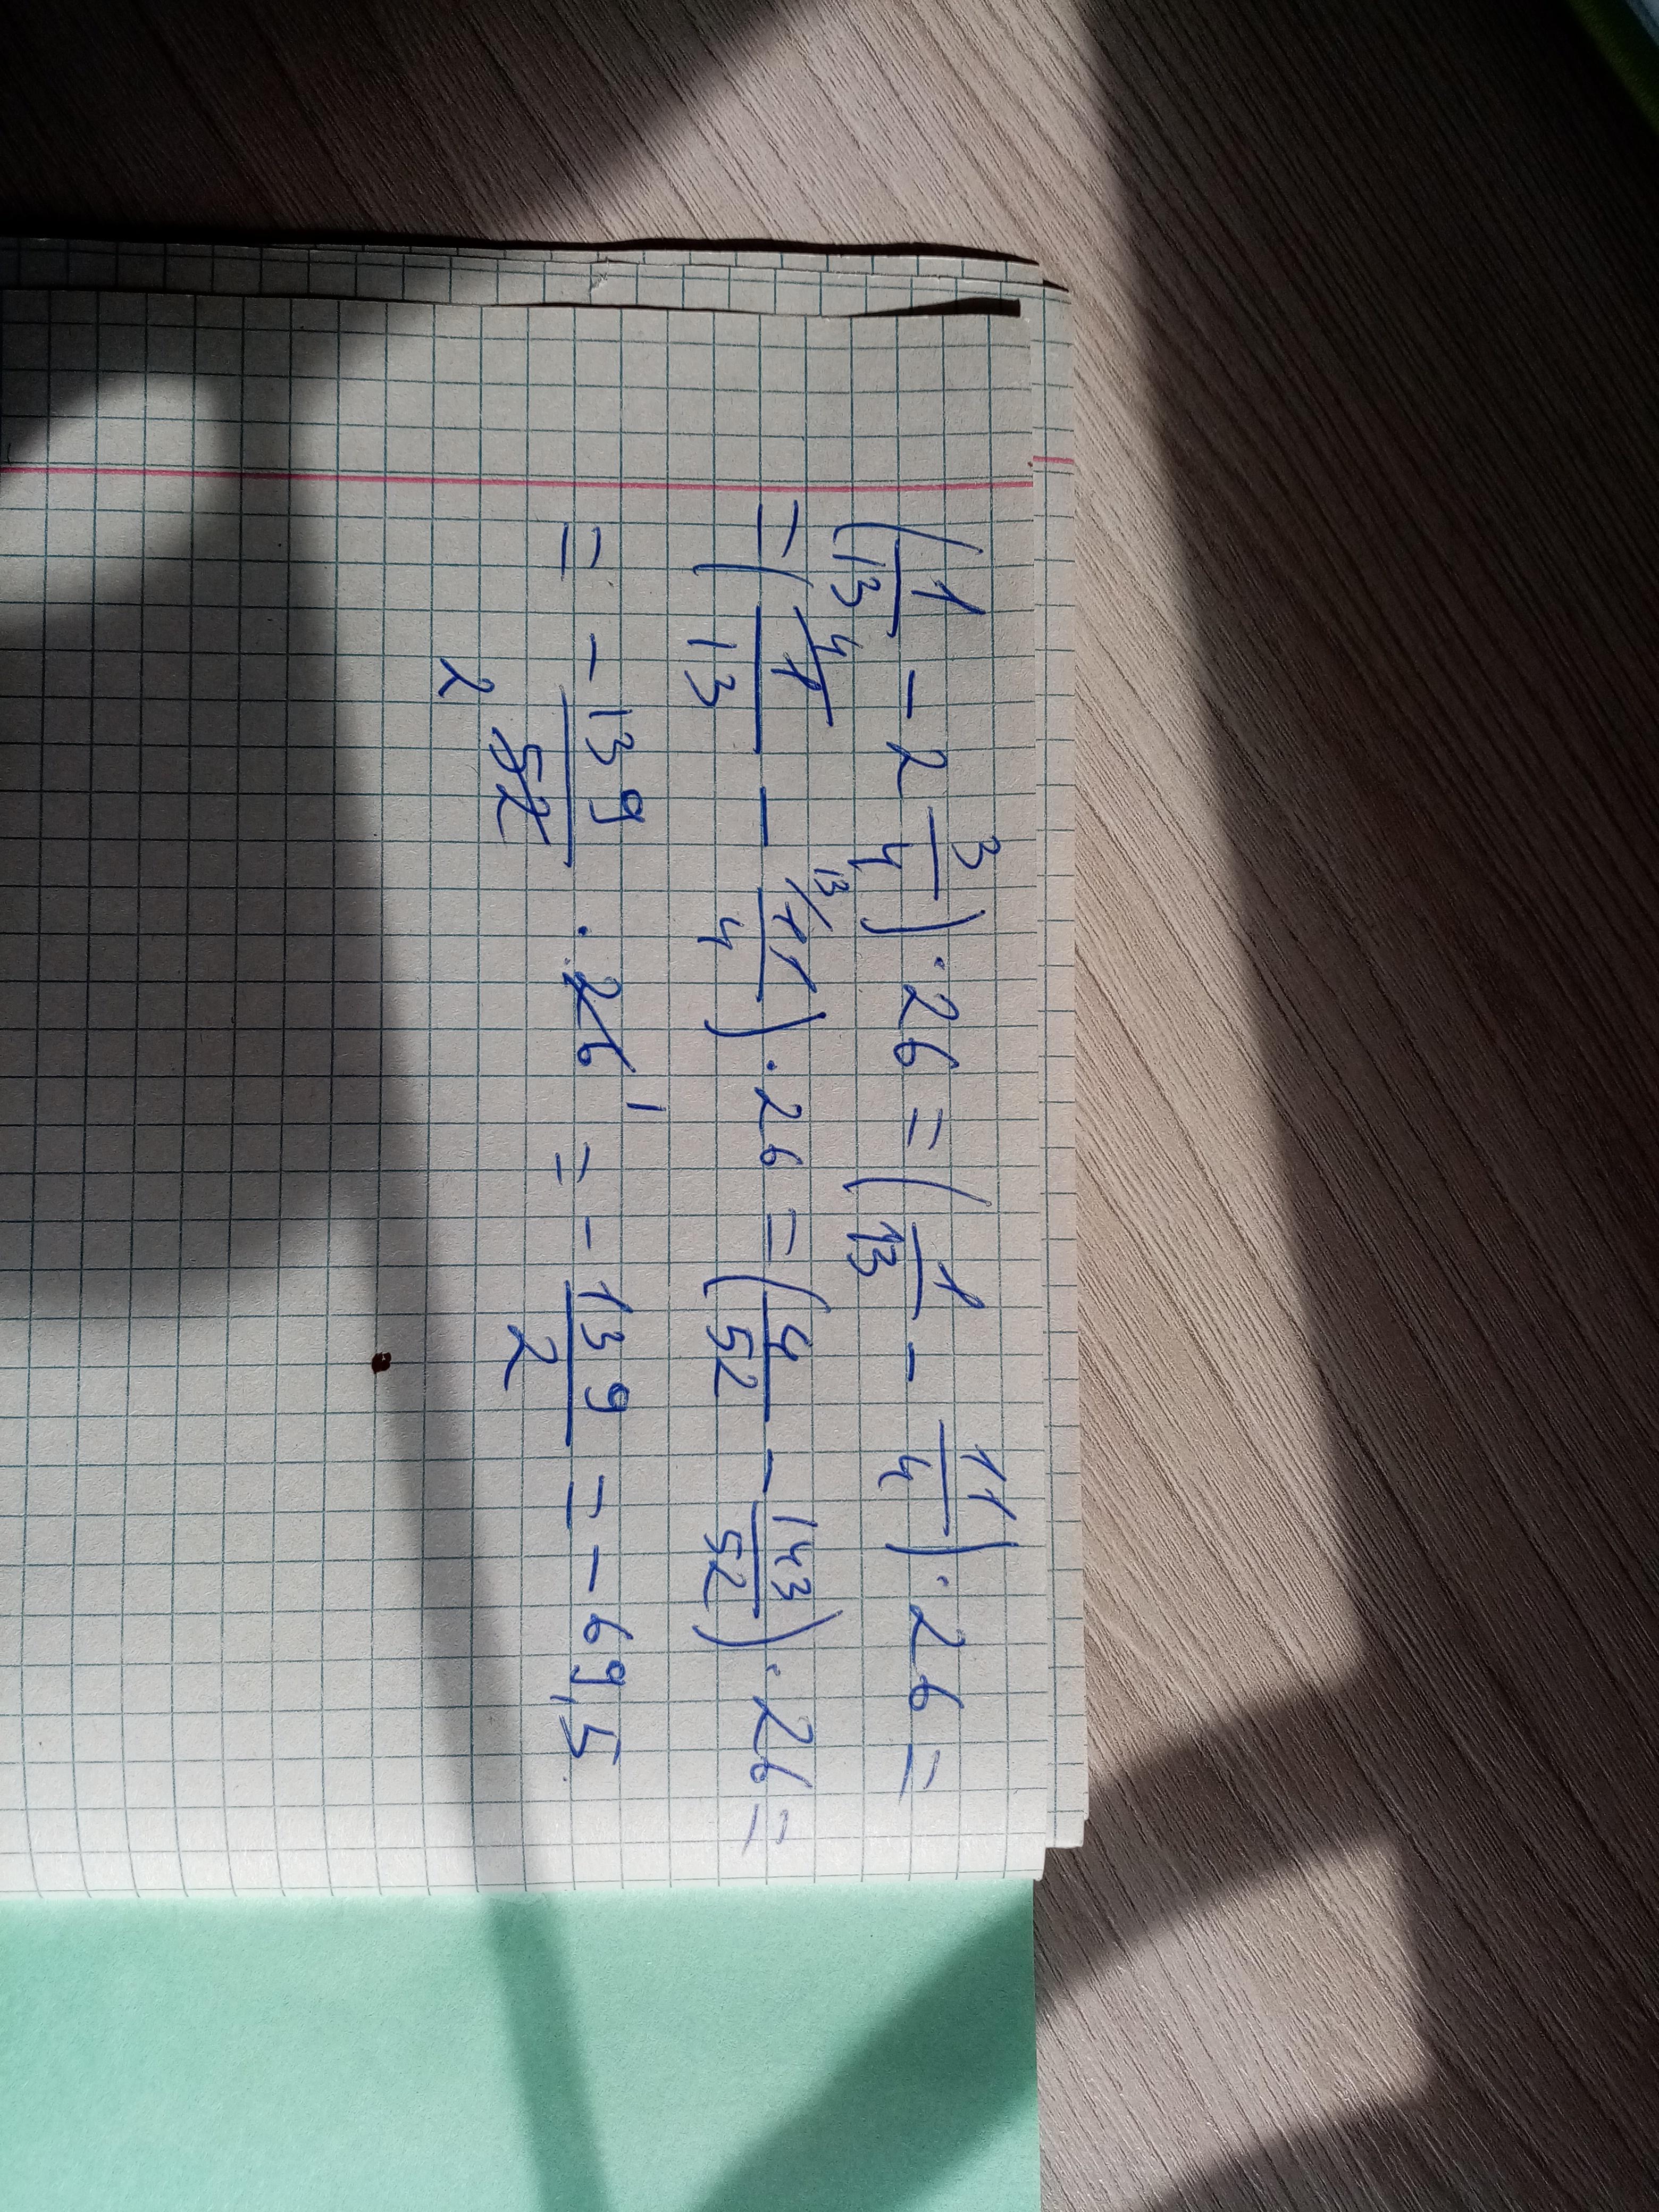 (1/13 - 2 3/4) · 26 = (1/13 - 11/4) · 26 =
= (4/1/13 - 13/11/4) · 26 = (4/52 - 143/52) · 26 =
= - 139/52 2 · 26 1 = - 139/2 = - 69,5